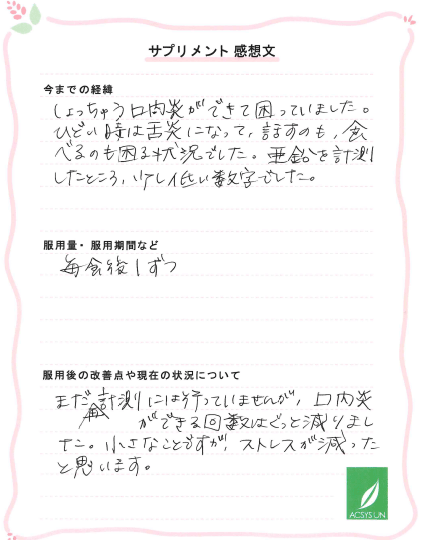 サプリメント 感想文
今までの経緯
しょっちゅう口内炎ができて困っていました。
ひどい時は舌炎になって、話すのも、食
べるのも困る状況でした。亜鉛を計測
したところ、少し低い数字でした。
服用量・服用期間など
毎食後1ずつ
服用後の改善点や現在の状況について
まだ計測には行っていませんが、口内炎
ができる回数はぐっと減りまし
た。小さなことですが、ストレスが減った
と思います。
ACSYSUN